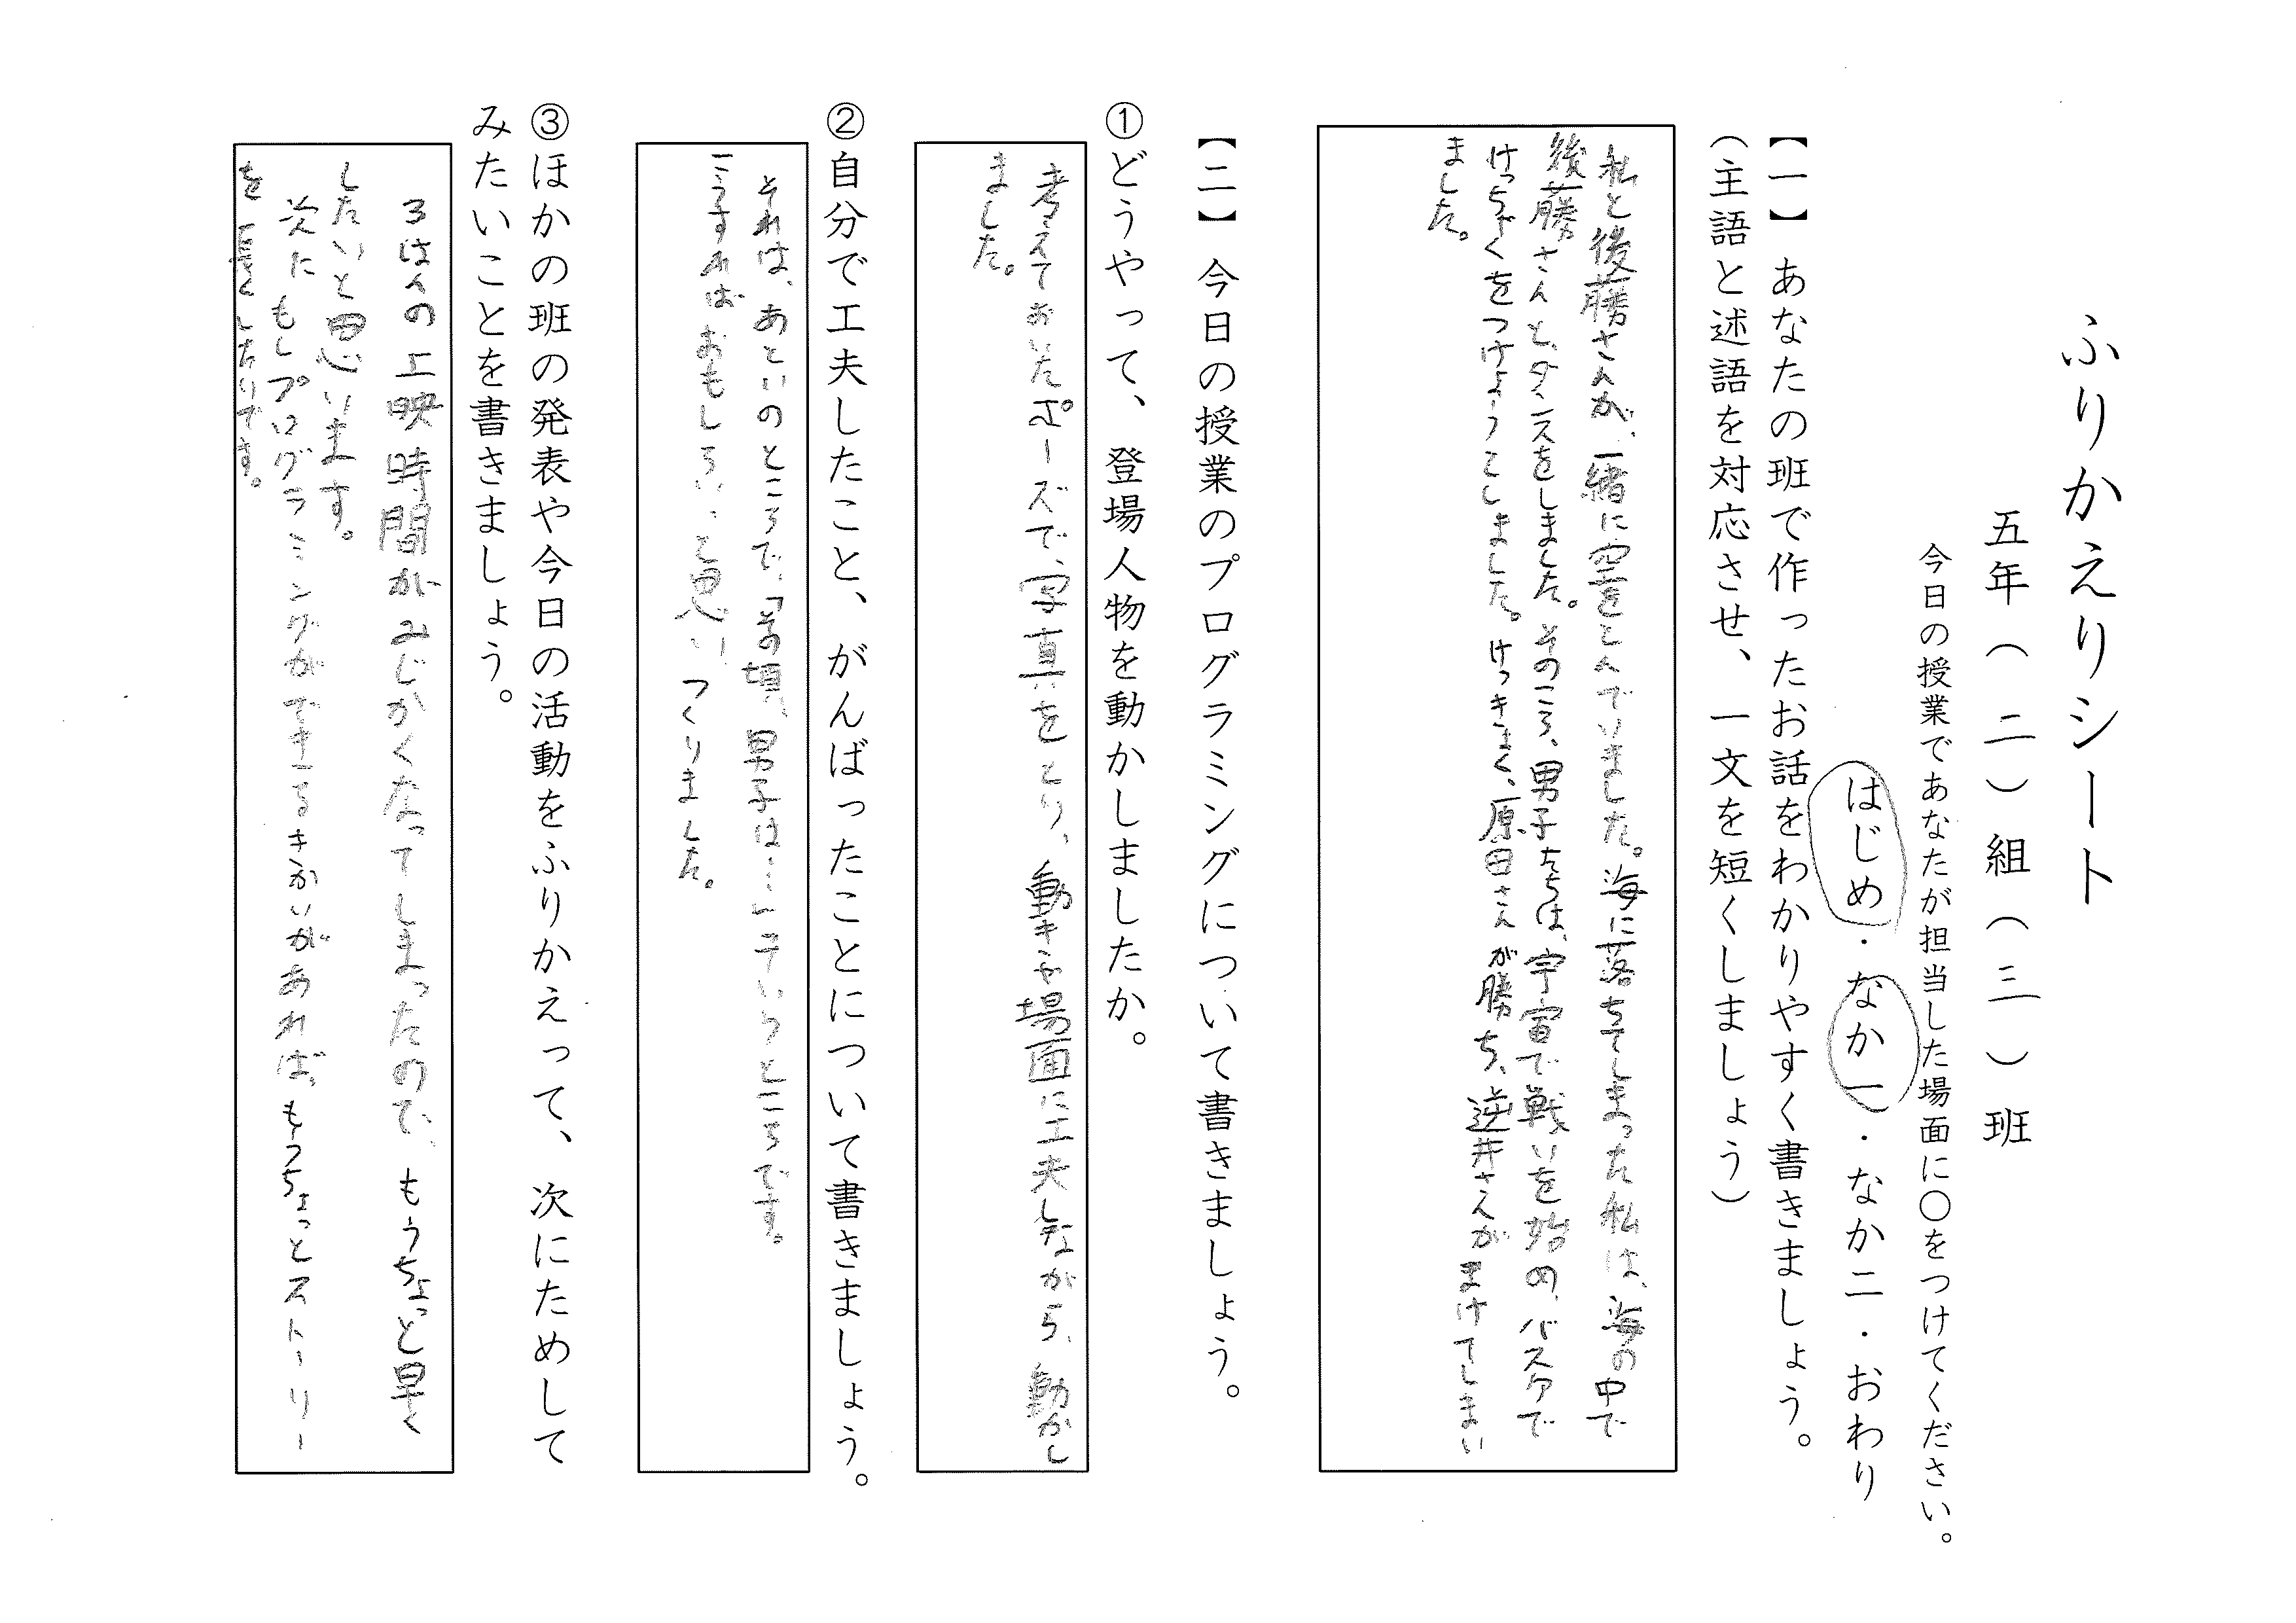 ふりかえりシート
五年（二）組（三）班
今日の授業であなたが担当した場面に〇をつけてください。
はじめ・なか一・なか二・おわり
【一】あなたの班で作ったお話をわかりやすく書きましょう。
（主語と述語を対応させ、一文を短くしましょう）
私と後藤さんが、一緒に空をとんでいました。海に落ちてしまった私は、海の中で
後藤さんと、ダンスをしました。そのころ、男子たちは、宇宙で戦いを始め、バスケで
けっちゃくをつけようとしました。けっきょく、原田さんが勝ち、逆井さんがまけてしまい
ました。
【二】今日の授業のプログラミングについて書きましょう。
①どうやって、登場人物を動かしましたか。
考えておいたポーズで、写真をとり、動きや場面に工夫しながら、動かし
ました。
②自分で工夫したこと、がんばったことについて書きましょう。
それは、あといのところで、「その頃、男子は…」というところです。
こうすればおもしろい、と思い、つくりました。
③ほかの班の発表や今日の活動をふりかえって、次にためして
みたいことを書きましょう。
3はんの上映時間がみじかくなってしまったので、もうちょっと早く
したいと思います。
次にもしプログラミングができるきかいがあれば、もうちょっとストーリー
を長くしたりです。